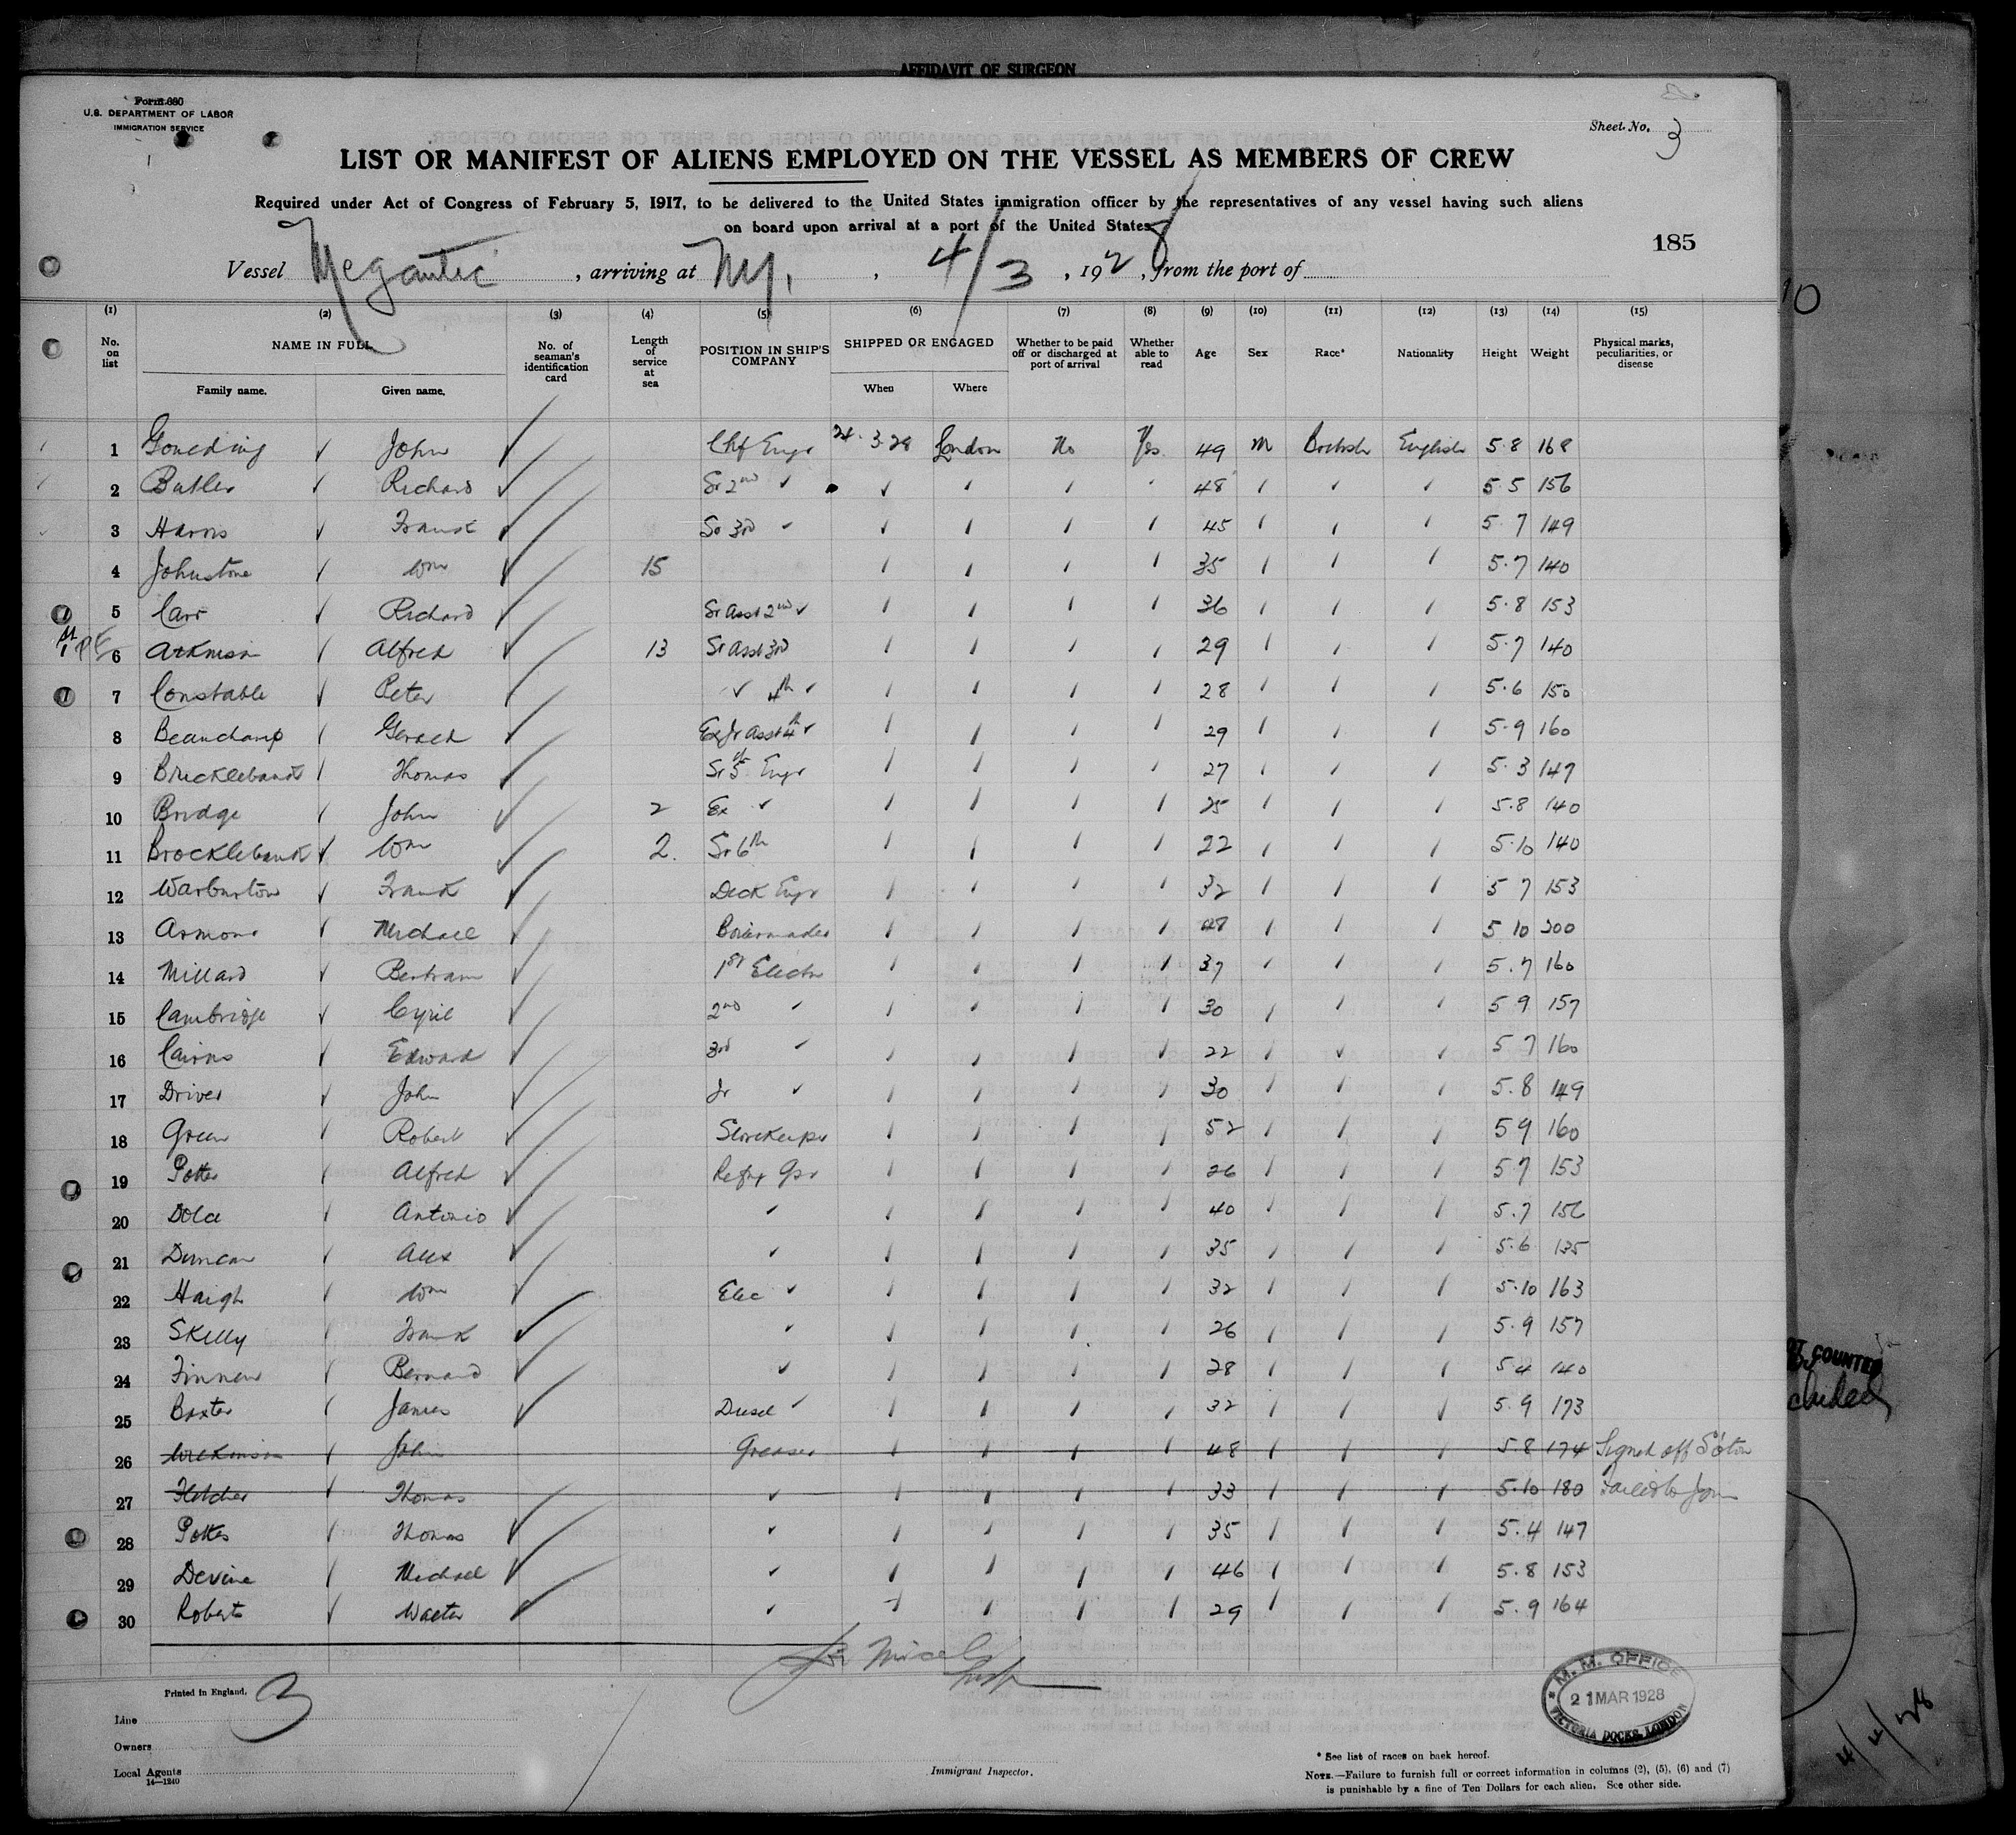 AFFIDAVIT OF SURGEON
Form 680
U.S. DEPARTMENT OF LABOR
IMMIGRATION SERVICE
Sheet No. 3
LIST OR MANIFEST OF ALIENS EMPLOYED ON THE VESSEL AS MEMBERS OF CREW
Required under Act of Congress of February 5, 1917, to be delivered to the United States immigration officer by the representatives of any vessel having such aliens
on board upon arrival at a port of the United States
185
Vessel Megantic, arriving at N.Y., 4/3, 1928, from the port of
(1) (2) (3) (4) (5) (6) (7) (8) (9) (10) (11) (12) (13) (14) (15)
No. on list NAME IN FULL No. of seaman's identification card Length of service at sea POSITION IN SHIP'S COMPANY SHIPPED OR ENGAGED Whether to be paid off or discharged at port of arrival Whether able to read Age Sex Race* Nationality Height Weight Physical marks, peculiarities, or disease
Family name. Given name. When Where
1 Goulding John Chf Engr 24.3.28 London No Yes 49 M British English 5.8 168
2 Butler Richard Sr 2nd 48 5 5 156
3 Harris Frank Sr 3rd 45 5 7 149
4 Johnstone Wm 15 35 5.7 140
5 Carr Richard Sr Asst 2nd 36 5.8 153
6 Atkinson Alfred 13 Sr Asst 3rd 29 5.7 140
7 Constable Peter 4th 28 5.6 150
8 Beauchamp Gerald Ex Jr Asst 4th 29 5.9 160
9 Thomas Sr 5th Engr 27 5.3 147
10 Bridge John 2 Ex 25 5.8 140
11 Brocklebank Wm 2. Sr 6th 22 5.10 140
12 Warburton Frank Deck Engr 32 5 7 153
13 Michael Boilermaker 48 5 10 200
14 Millard Bertram 1st Electn 37 5.7 160
15 Cambridge Cyril 2nd 30 5 9 157
16 Cairns Edward 3rd 22 5 7 160
17 Driver John Jr 30 5.8 149
18 Green Robert Storekeeper 52 5 9 160
19 Potter Alfred Refrg Gsr 26 5 7 153
20 Antonio 40 5.7 156
21 Duncan Alex 35 5.6 135
22 Haigh Wm Elec 32 5.10 163
23 Skelly Frank 26 5.9 157
24 Bernard 28 5 4 140
25 Baxter James Diesel 32 5.9 173
26 Wilkinson John Greaser 48 5.8 174 Signed off S'oton
27 Fletcher Thomas 33 5.10 180 Failed to Join
28 Potter Thomas 35 5.4 147
29 Devine Michael 46 5.8 153
30 Roberts Walter 29 5.9 164
Printed in England. 3
Line
Owners
Local Agents
14—1240
Immigrant Inspector.
M. M. OFFICE
21 MAR 1928
VICTORIA DOCKS. LONDON
* See list of races on back hereof.
NOTE.—Failure to furnish full or correct information in columns (2), (5), (6) and (7)
is punishable by a fine of Ten Dollars for each alien. See other side.
COUNTED
4/4/28